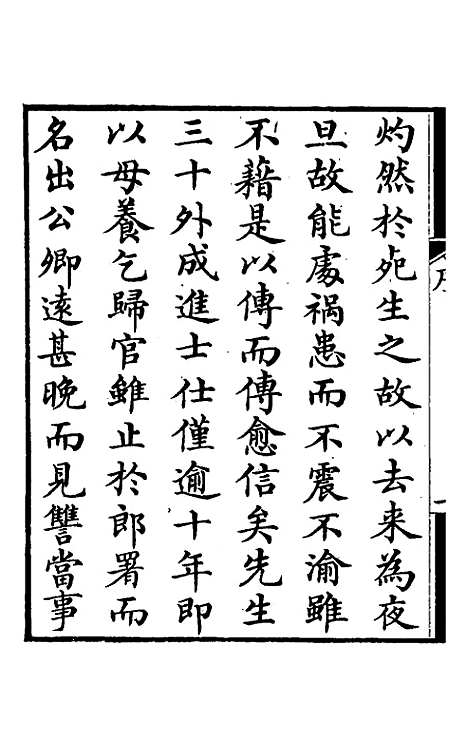 灼然於死生之故以去来為夜
旦故能處禍患而不震不渝雖
不藉是以傳而傳愈信矣先生
三十外成進士仕僅逾十年即
以母養乞歸官雖止於郎署而
名出公卿遠甚晚而見讐當事
序